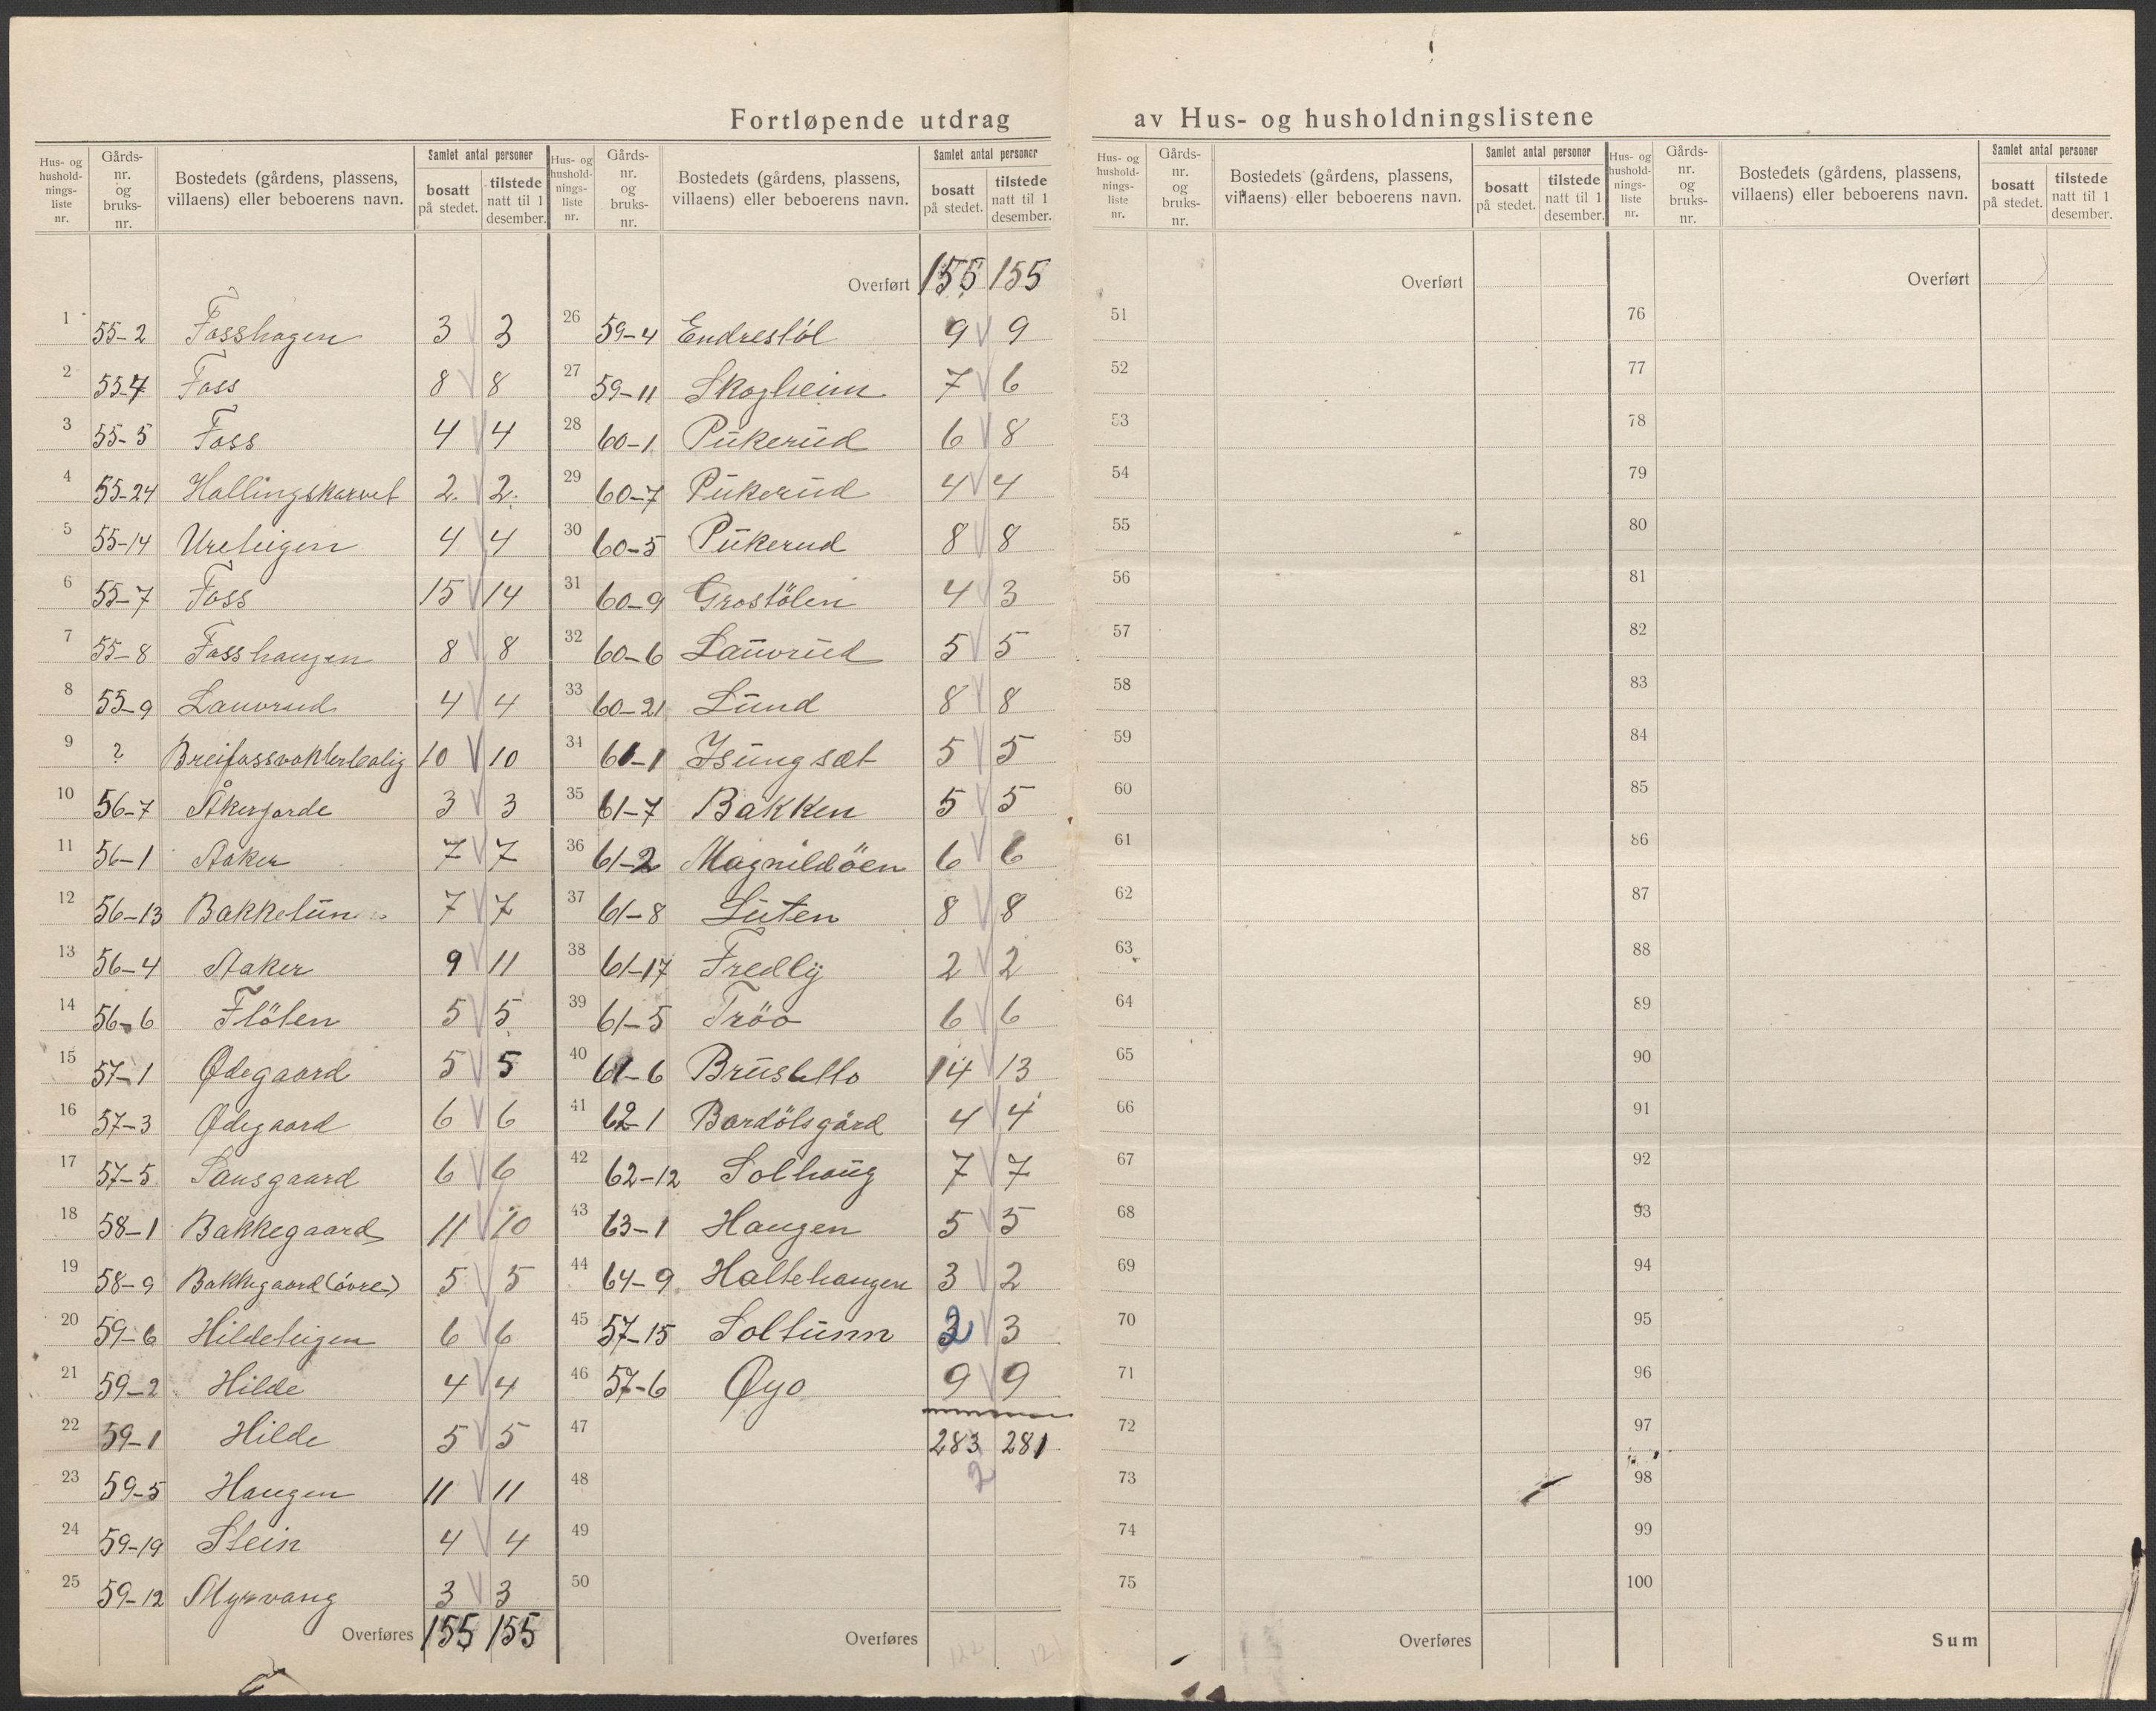 Fortløpende utdrag av Hus- og husholdningslistene
Hus- og husholdnings-liste nr. Gårds-nr. og bruks-nr. Bostedets (gårdens, plassens, villaens) eller beboerens navn. Samlet antal personer bosatt på stedet. tilstede natt til 1 desember.
1 55-2 Fosshagen 3 3
2 55-4 Foss 8 8
3 55-5 Foss 4 4
4 55-24 Hallingskarvet 2. 2.
5 55-14 Ureteigen 4 4
6 55-7 Foss 15 14
7 55-8 Fosshaugen 8 8
8 55-9 Lauvrud 4 4
9 ? Breifossvokterbolig 10 10
10 56-7 Åkerjorde 3 3
11 56-1 Aaker 7 7
12 56-13 Bakketun 7 7
13 56-4 Aaker 9 11
14 56-6 Flöten 5 5
15 57-1 Ødegaard 5 5
16 57-3 Ødegaard 6 6
17 57-5 Sausgaard 6 6
18 58-1 Bakkegaard 11 10
19 58-9 Bakkegaard (övre) 5 5
20 59-6 Hildeteigen 6 6
21 59-2 Hilde 4 4
22 59-1 Hilde 5 5
23 59-5 Haugen 11 11
24 59-19 Stein 4 4
25 59-12 Myrvang 3 3
Overføres 155 155
Hus- og husholdnings-liste nr. Gårds-nr. og bruks-nr. Bostedets (gårdens, plassens, villaens) eller beboerens navn. Samlet antal personer bosatt på stedet. tilstede natt til 1 desember.
Overført 155 155
26 59-4 Endrestöl 9 9
27 59-11 Skogheim 7 6
28 60-1 Pukerud 6 8
29 60-7 Pukerud 4 4
30 60-5 Pukerud 8 8
31 60-9 Grostölen 4 3
32 60-6 Lauvrud 5 5
33 60-21 Lund 8 8
34 61-1 Isungset 5 5
35 61-7 Bakken 5 5
36 61-2 Magnildöen 6 6
37 61-8 Luten 8 8
38 61-17 Fredly 2 2
39 61-5 Tröo 6 6
40 61-6 Brusletto 14 13
41 62-1 Bardölsgård 4 4
42 62-12 Solhaug 7 7
43 63-1 Haugen 5 5
44 64-9 Haltehaugen 3 2
45 57-15 Soltunn 2 3
46 57-6 Øyo 9 9
47 283 281
2
48
49
50
Overføres
Hus- og husholdnings-liste nr. Gårds-nr. og bruks-nr. Bostedets (gårdens, plassens, villaens) eller beboerens navn. Samlet antal personer bosatt på stedet. tilstede natt til 1 desember.
Overført
51
52
53
54
55
56
57
58
59
60
61
62
63
64
65
66
67
68
69
70
71
72
73
74
75
Overføres
Hus- og husholdnings-liste nr. Gårds-nr. og bruks-nr. Bostedets (gårdens, plassens, villaens) eller beboerens navn. Samlet antal personer bosatt på stedet. tilstede natt til 1 desember.
Overført
76
77
78
79
80
81
82
83
84
85
86
87
88
89
90
91
92
93
94
95
96
97
98
99
100
Sum